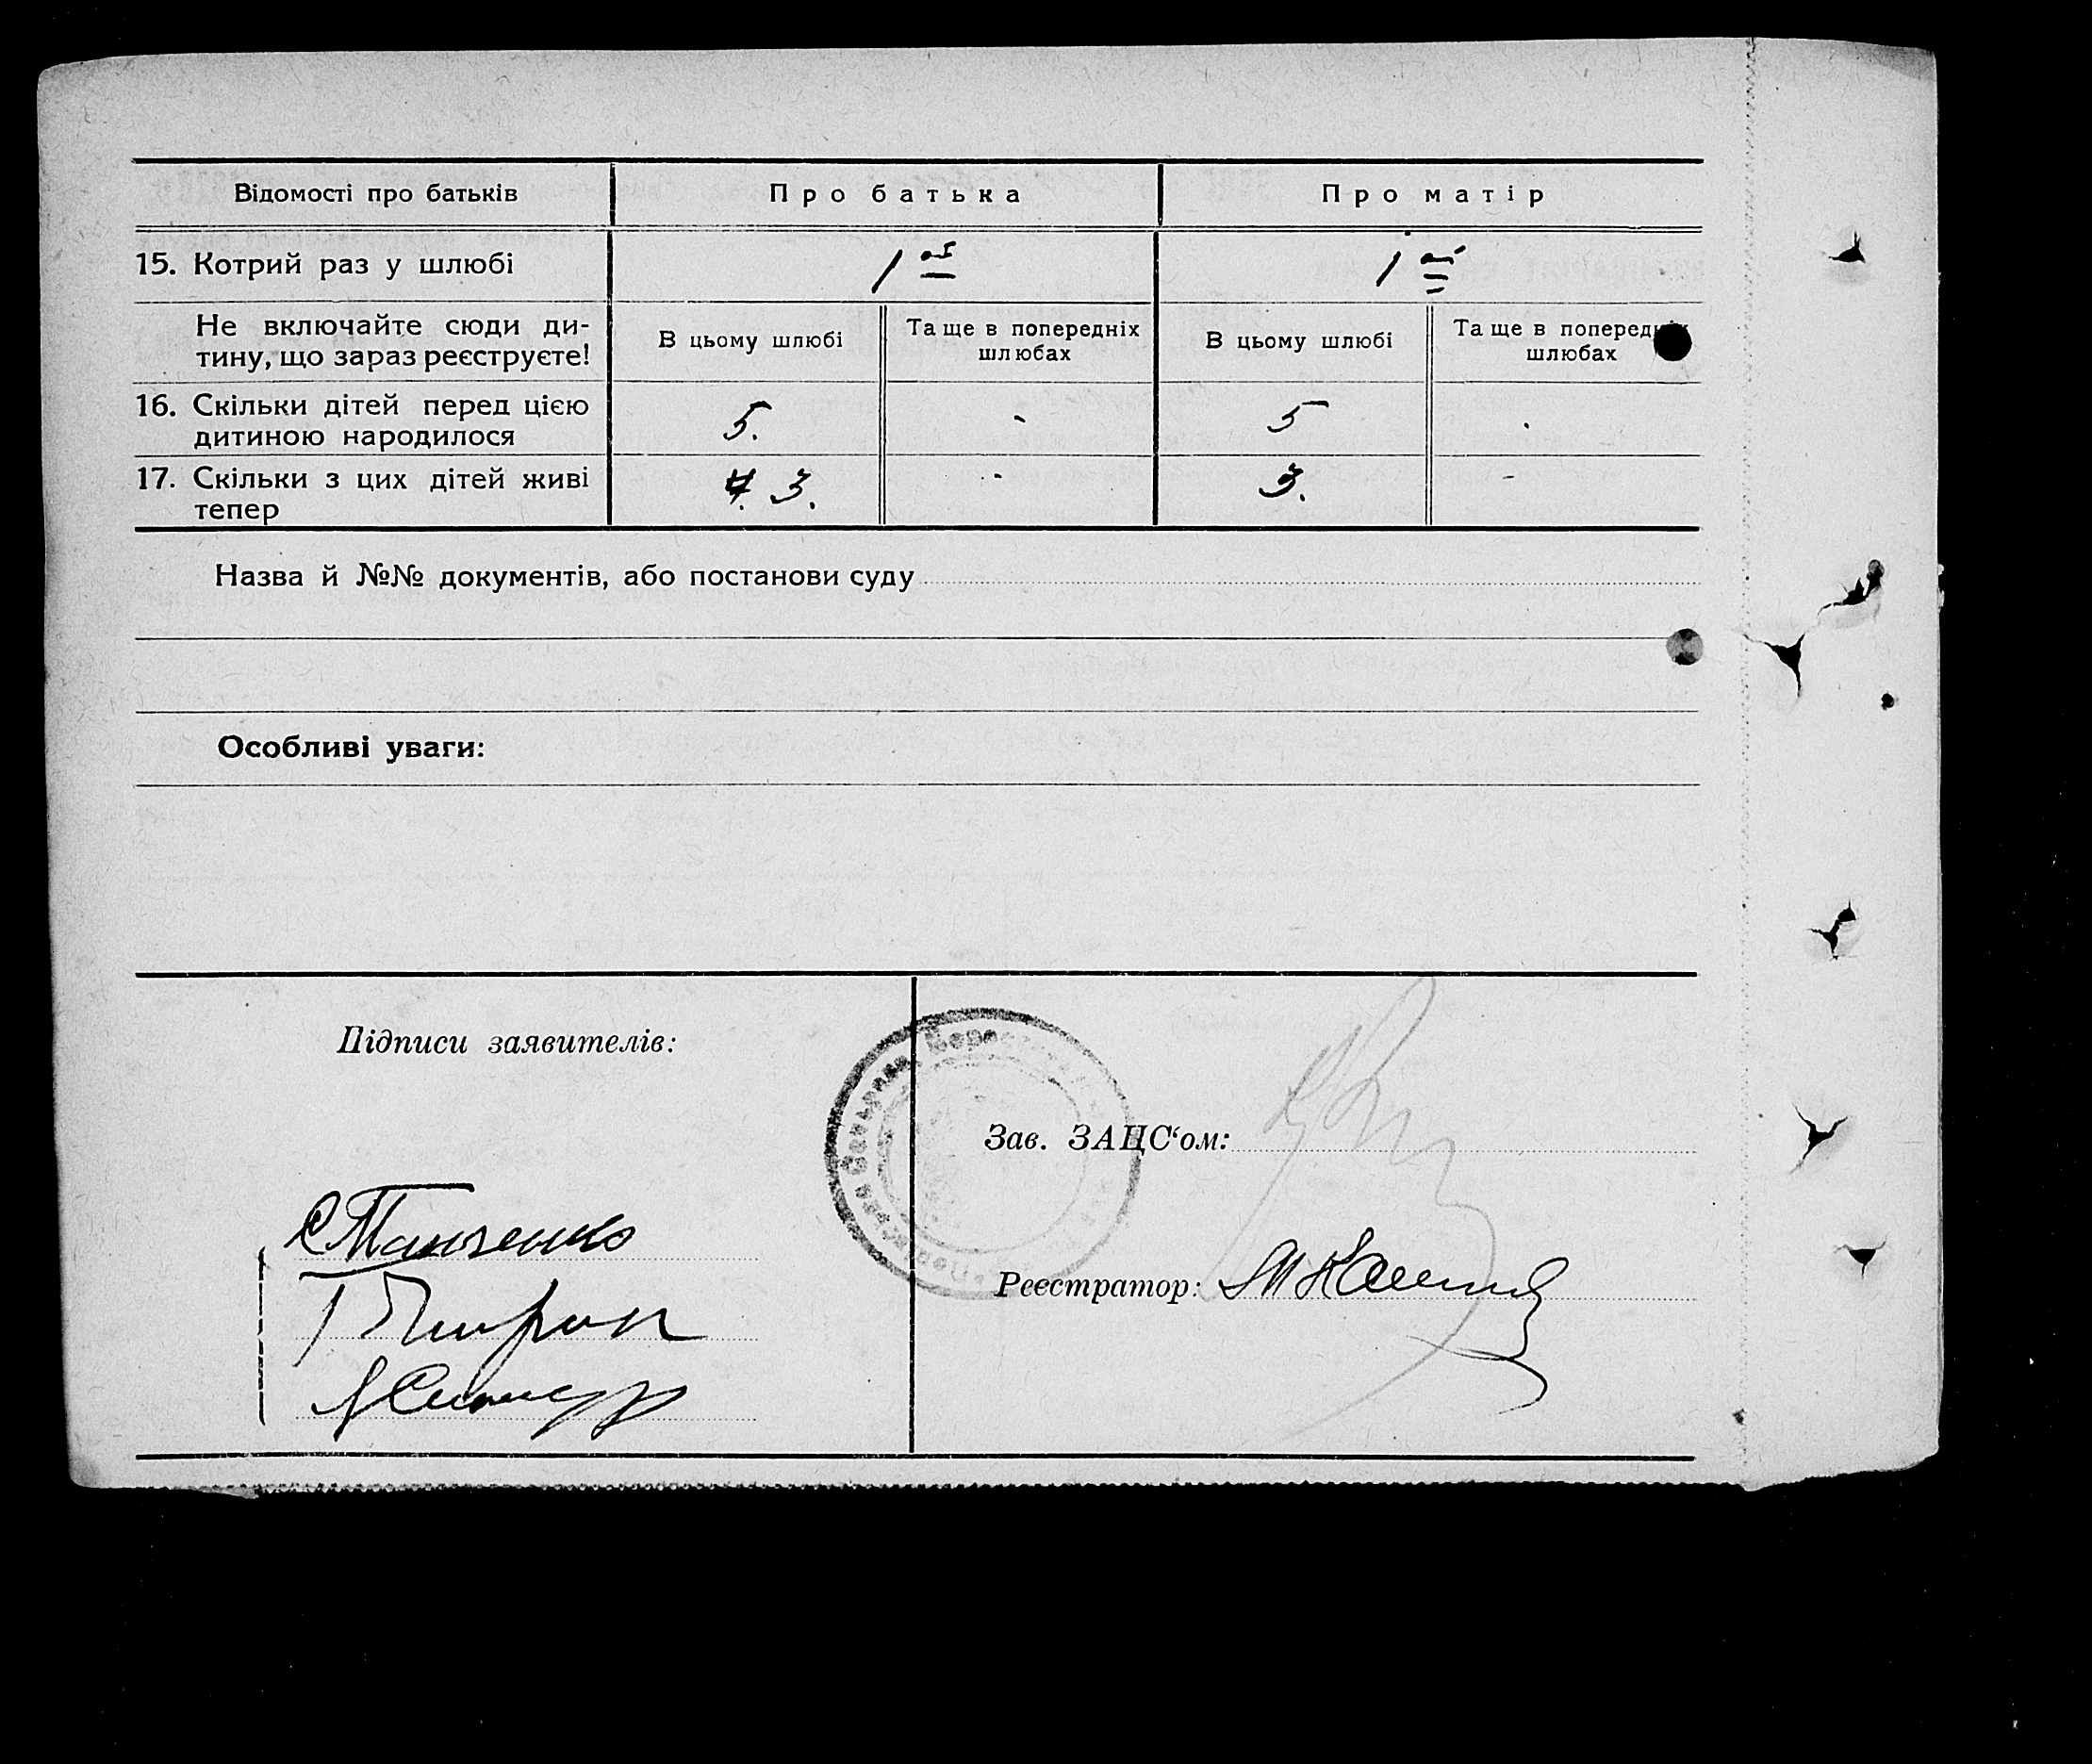 Відомості про батьків Про батька Про матір
15. Котрий раз у шлюбі 1 ый 1 ый
Не включайте сюди ди-
тину, що зараз реєструєте!
В цьому шлюбі Та ще в попередніх шлюбах В цьому шлюбі Та ще в попередніх шлюбах
16. Скільки дітей перед цією
дитиною народилося 5. - 5 -
17. Скільки з цих дітей живі
тепер 4. 3. - 3. -
Назва й №№ документів, або постанови суду
Особливі уваги:
Підписи заявителів:
Зав. ЗАЦС‘ом:
Реєстратор: